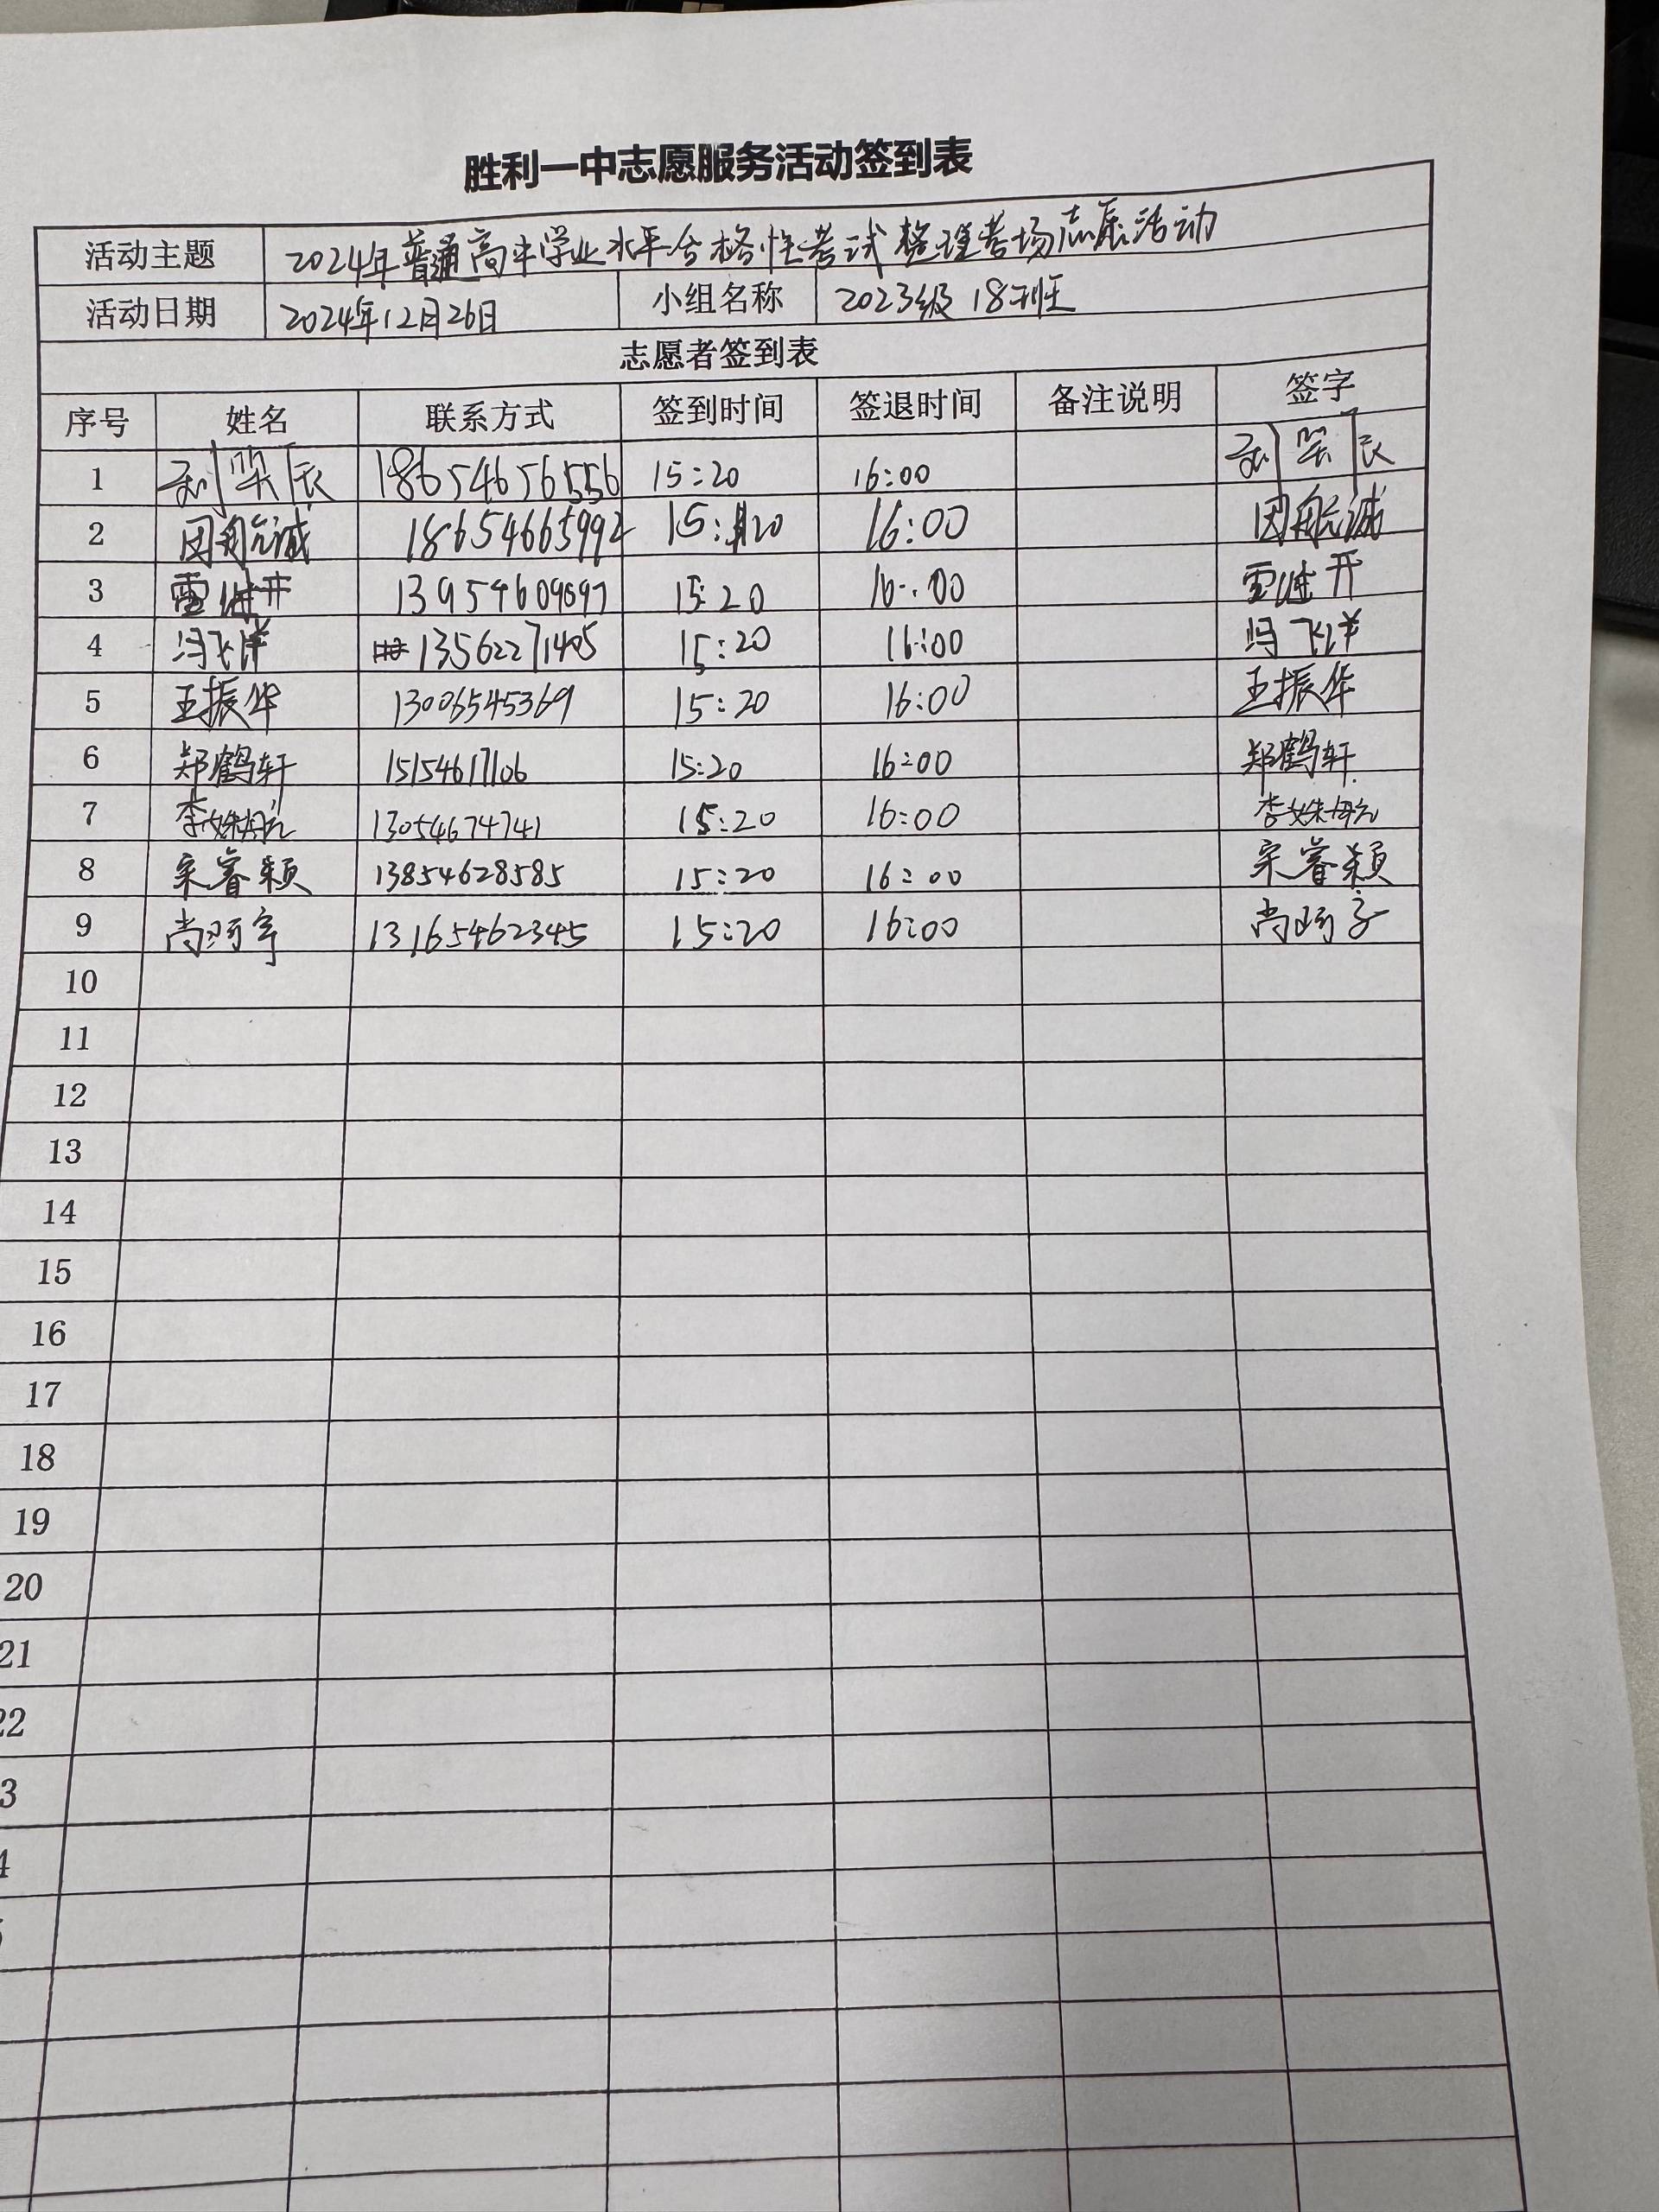 胜利一中志愿服务活动签到表
活动主题 2024年普通高中学业水平合格性考试整理考场志愿活动
活动日期 2024年12月26日 小组名称 2023级18班
志愿者签到表
序号 姓名 联系方式 签到时间 签退时间 备注说明 签字
1 18654656556 15:20 16:00
2 因航诚 18654665992 15:20 16:00 因航诚
3 15:20 16:00
4 冯飞洋 13562271405 15:20 16:00 冯飞洋
5 王振华 13006545369 15:20 16:00 王振华
6 郑鹤轩 15154617106 15:20 16:00 郑鹤轩
7 13054674741 15:20 16:00
8 宋睿颖 13854628585 15:20 16:00 宋睿颖
9 13165462345 15:20 16:00
10
11
12
13
14
15
16
17
18
19
20
21
22
3
4